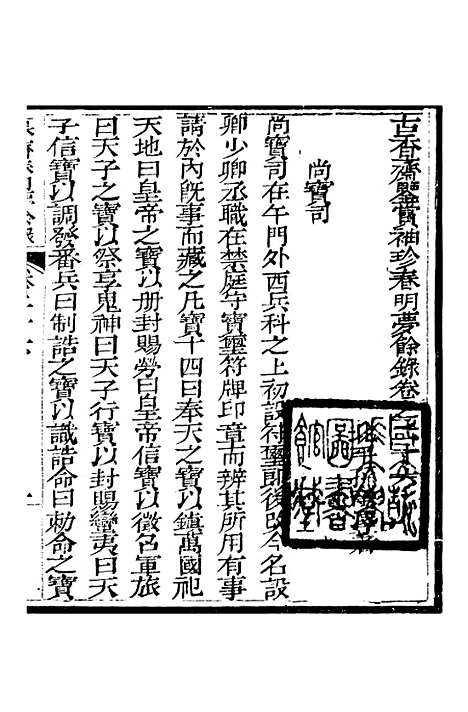 古香齋鑒賞袖珍春明夢餘錄卷之二十六
尚寶司
尚寶司在午門外西兵科之上初設符璽郎後改今名設
卿少卿丞職在禁庭守寶璽符牌印章而辨其所用有事
請於內旣事而藏之凡寶十四曰奉天之寶以鎮萬國祀
天地曰皇帝之寶以册封賜勞曰皇帝信寶以徵召軍旅
曰天子之寶以祭享鬼神曰天子行寶以封賜蠻夷曰天
子信寶以調發番兵曰制誥之寶以識誥命曰勅命之寶